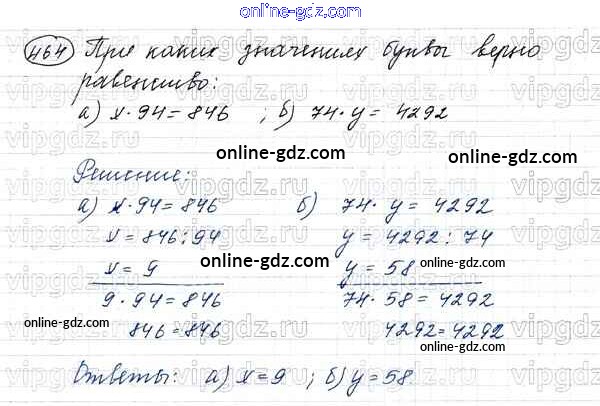 online-gdz.com
464 При каких значениях буквы верно
равенство:
а) x·94=846 ; б) 74·y = 4292
online-gdz.com
online-gdz.com
Решение:
а) x·94=846 б) 74·y = 4292
x = 846:94 y = 4292:74
online-gdz.com
online-gdz.com
x = 9 y = 58
9·94=846 74·58=4292
online-gdz.com
846=846 4292=4292
online-gdz.com
Ответы: а) x=9 ; б) y=58.
vipgdz.ru